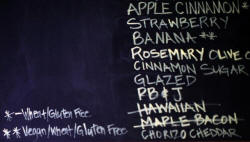 APPLE CINNAMON*
STRAWBERRY
BANANA **
ROSEMARY OLIVE O
CINNAMON SUGAR
GLAZED
PB & J
HAWAIIAN
MAPLE BACON
CHORIZO CHEDDAR
* - Wheat/Gluten Free
** Vegan/Wheat/Gluten Free